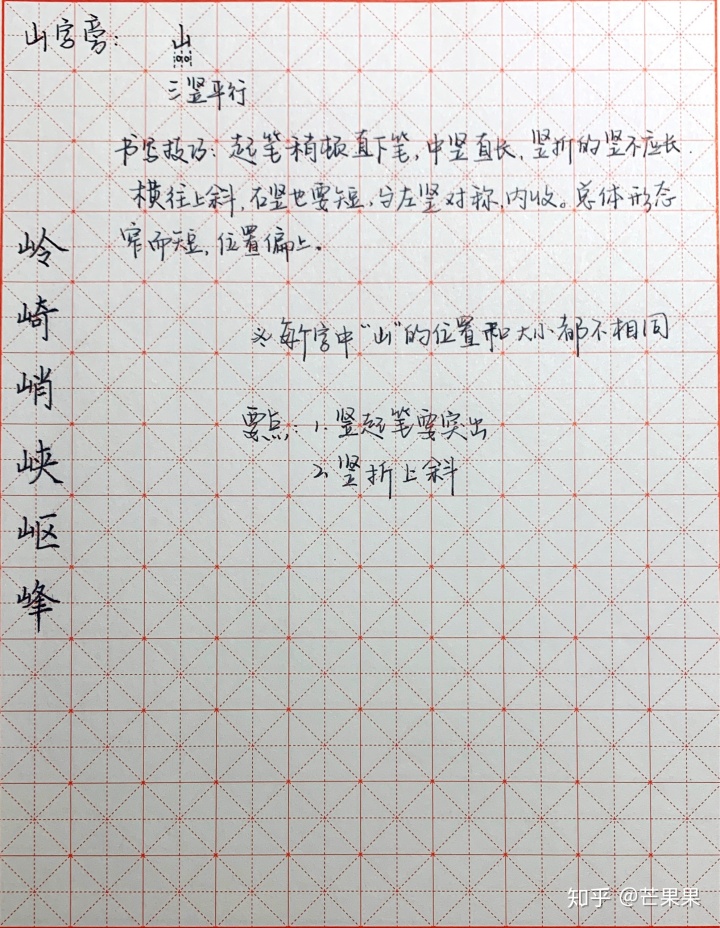 山字旁：
山
三竖平行
书写技巧：起笔稍顿直下笔，中竖直长，竖折的竖不应长．
横往上斜，右竖也要短，与左竖对称，内收。总体形态
窄而短，位置偏上。
岭
崎
每个字中“山”的位置和大小都不相同
峭
要点：1. 竖起笔要突出
2. 竖折上斜
峡
岖
峰
知乎 @芒果果